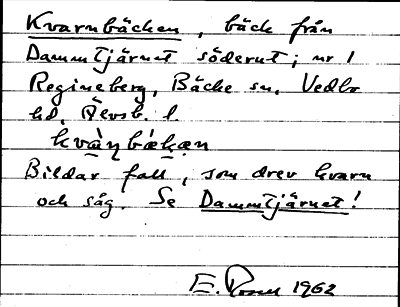 Kvarnbäcken, bäck från
Dammtjärnet söderut; nr 1
Regineberg, Bäcke sn, Vedbo
hd, Älvsb. l.
kvàṇbækæn
Bildar fall, som drev kvarn
och såg. Se Dammtjärnet!
E. Rosell 1962